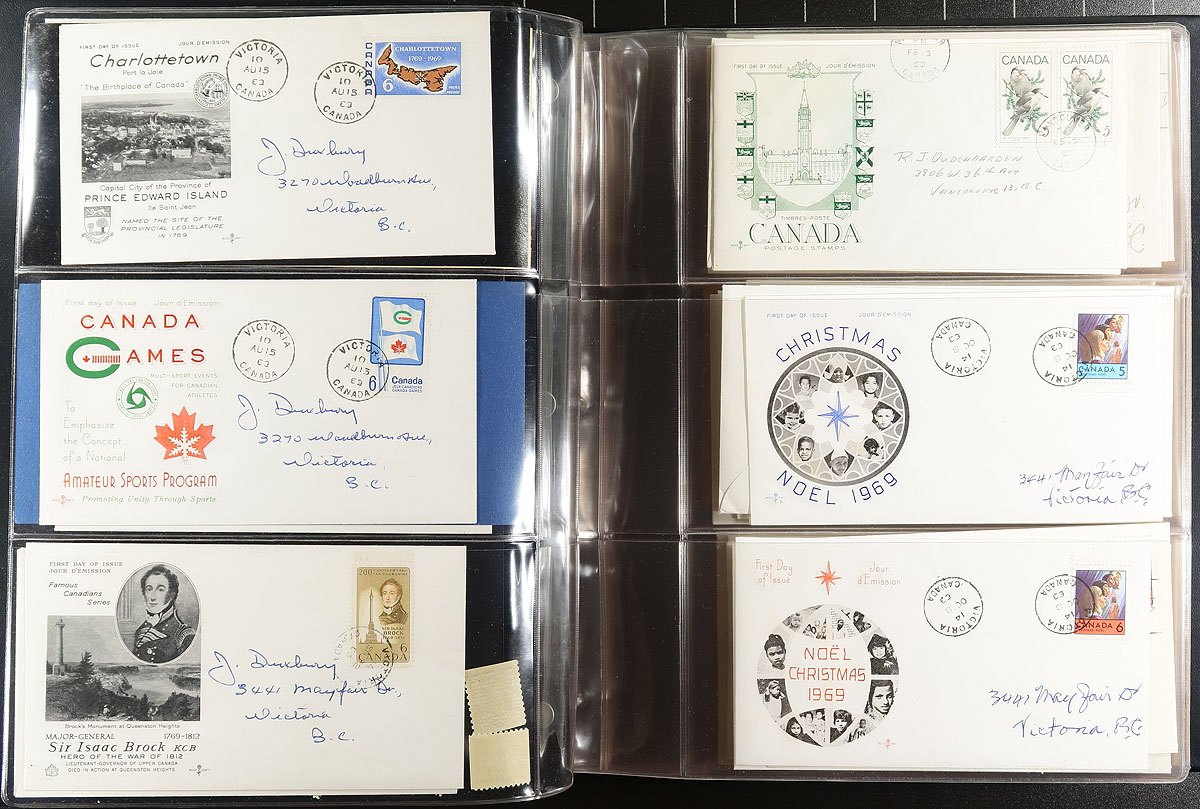 FIRST DAY OF ISSUE JOUR D'EMISSION
Charlottetown
Port la Joie
"The Birthplace of Canada"
Capital City of the Province of
PRINCE EDWARD ISLAND
Ile Saint Jean
NAMED THE SITE OF THE
PROVINCIAL LEGISLATURE
IN 1769
VICTORIA
10
AU 15
69
CANADA
VICTORIA
10
AU 15
69
CANADA
CANADA
CHARLOTTETOWN
1769-1969
6
J. Duxbury
3270 Woodburn Ave,
Victoria
B.C.
First day of Issue Jour d'Emission
CANADA
GAMES
MULTI-SPORT EVENTS
FOR CANADIAN
ATHLETES
To
Emphasize
the Concept
of a National
AMATEUR SPORTS PROGRAM
Promoting Unity Through Sports
VICTORIA
10
AU 15
69
CANADA
VICTORIA
10
AU 15
69
CANADA
6 Canada
JEUX CANADIENS
CANADA GAMES
J. Duxbury
3270 Woodburn Ave,
Victoria
B.C.
FIRST DAY OF ISSUE
JOUR D'EMISSION
Famous
Canadians
Series
Brock's Monument at Queenston Heights
MAJOR-GENERAL 1769-1812
Sir Isaac Brock KCB
HERO OF THE WAR OF 1812
LIEUTENANT-GOVERNOR OF UPPER CANADA
DIED IN ACTION AT QUEENSTON HEIGHTS
200th ANNIVERSARY
SIR ISAAC
BROCK
6
CANADA
J. Duxbury
3441 Mayfair Dr.,
Victoria
B.C.
FIRST DAY OF ISSUE JOUR D'EMISSION
TIMBRES-POSTE
CANADA
POSTAGE STAMPS
CANADA
5
CANADA
5
R J OUDENAARDEN
3806 W 36th AVE
VANCOUVER 13. B.C.
FIRST DAY OF ISSUE JOUR D'EMISSION
CHRISTMAS
NOËL 1969
VICTORIA
14
OC 8
69
CANADA
VICTORIA
14
OC 8
69
CANADA
CANADA 5
3441 Mayfair Dr
Victoria, B.C.
First Day Jour
of Issue d'Emission
NOËL
CHRISTMAS
1969
VICTORIA
14
OC 8
69
CANADA
VICTORIA
14
OC 8
69
CANADA
CANADA 6
3441 Mayfair Dr
Victoria, B.C.